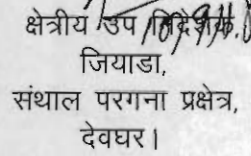 क्षेत्रीय उप निदेशक,
जियाडा,
संथाल परगना प्रक्षेत्र,
देवघर।